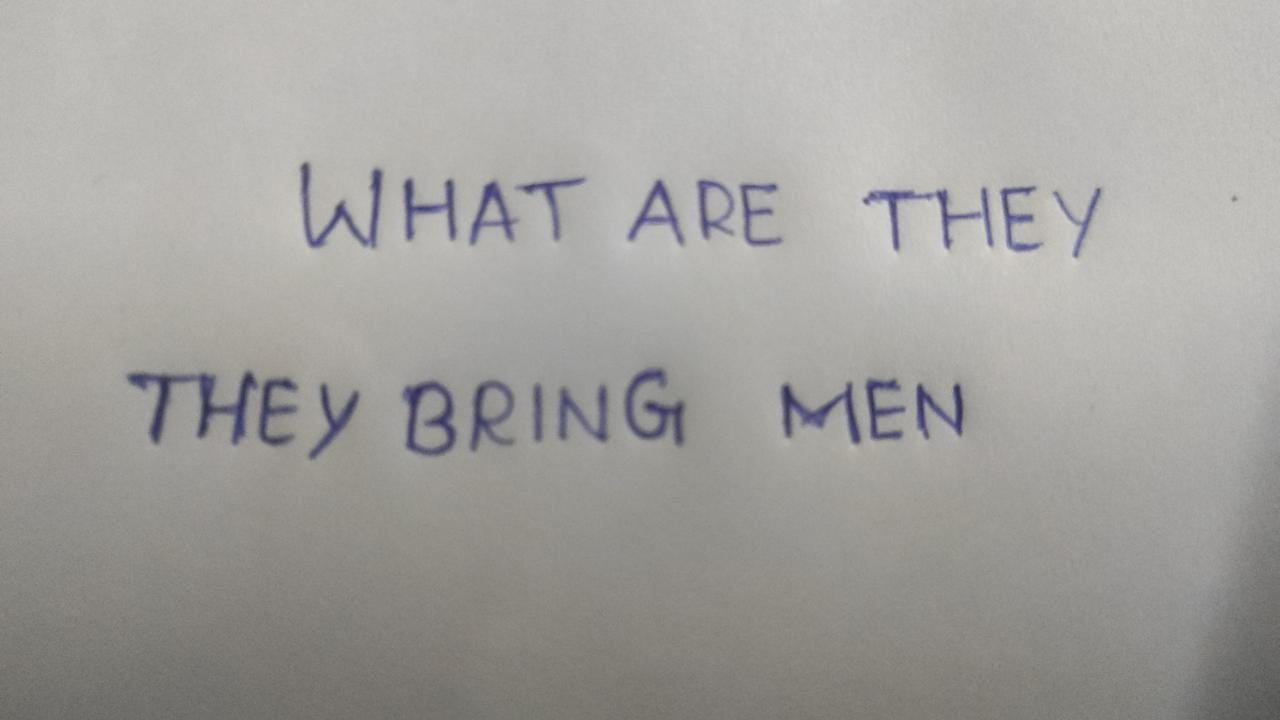 WHAT ARE THEY
THEY BRING MEN